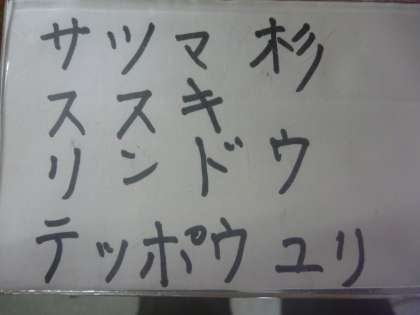 サツマ杉
ススキ
リンドウ
テッポウユリ